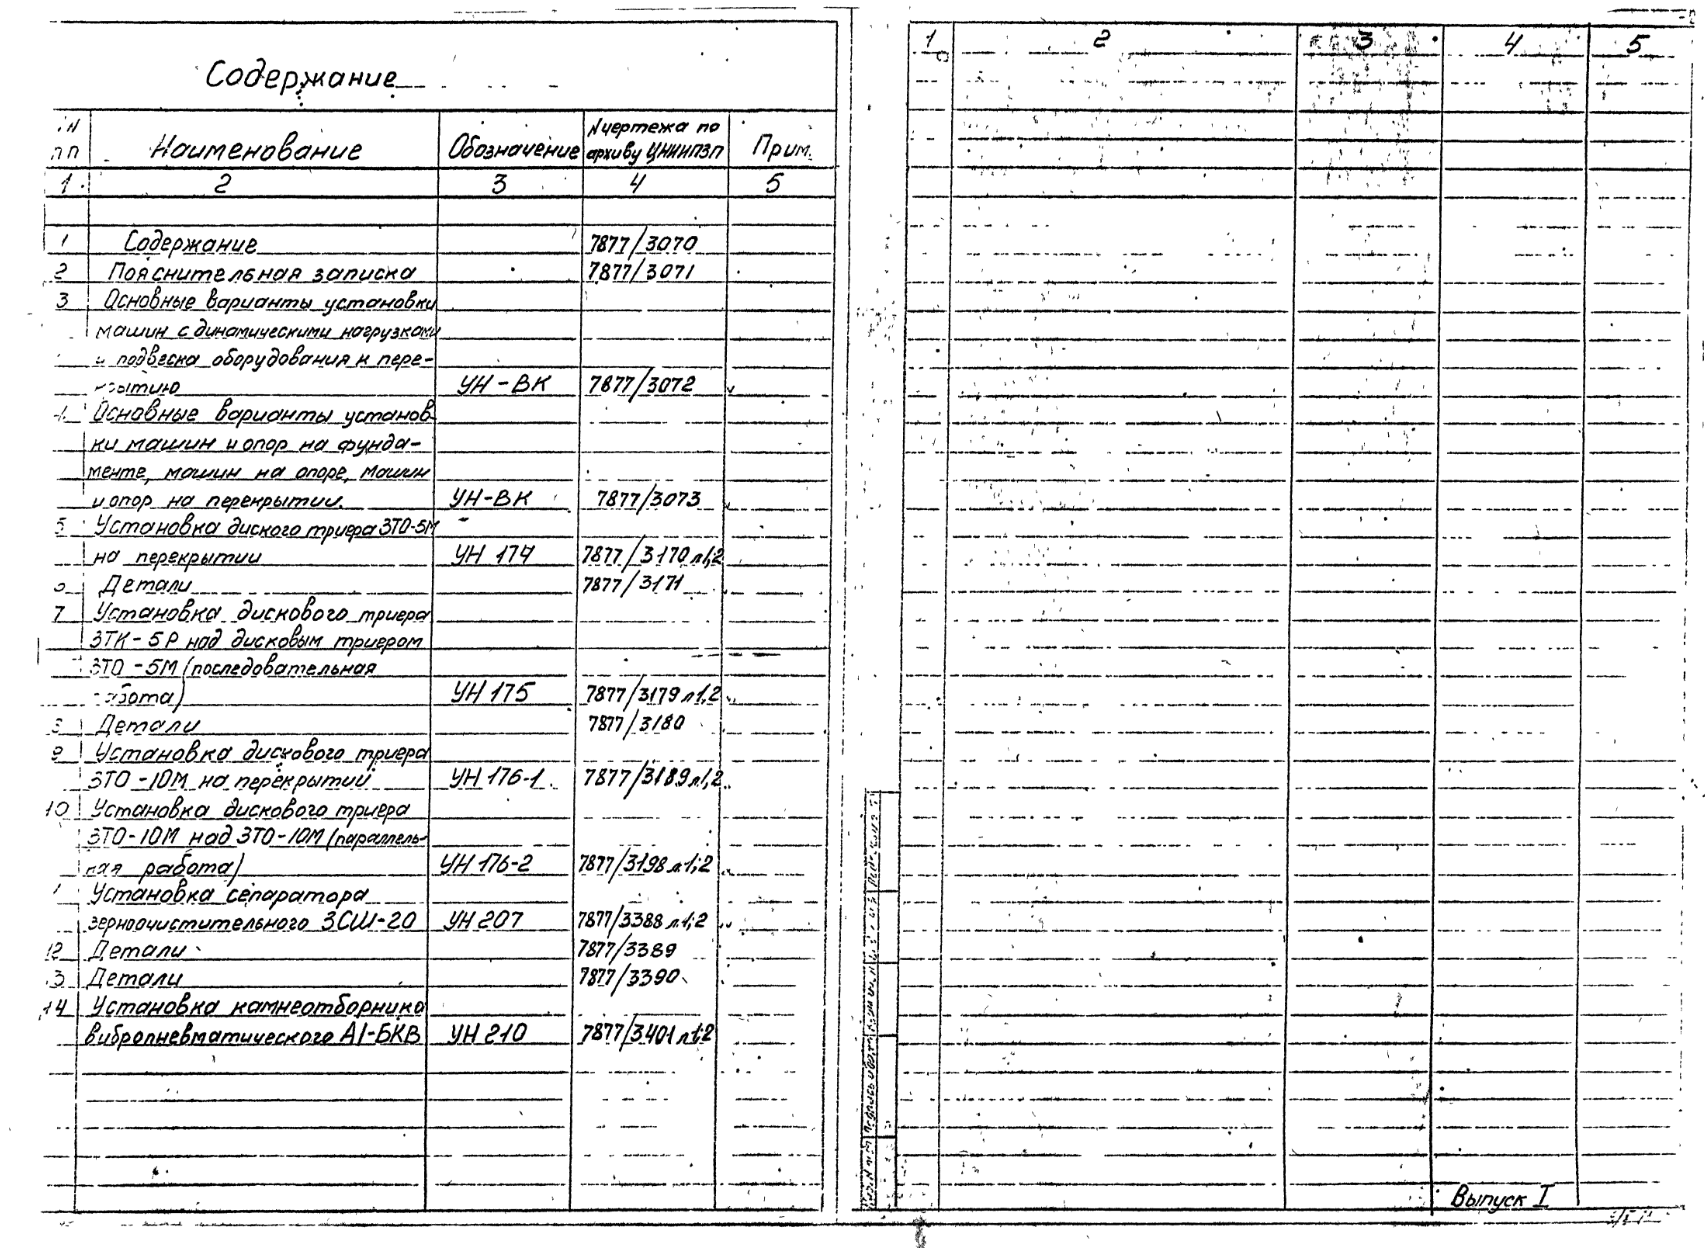 Содержание
N
пп
Наименование
Обозначение
N чертежа по
архиву ЦНИИПЗП
Прим.
1 2 3 4 5
1 Содержание 7877/3070
2 Пояснительная записка 7877/3071
3 Основные варианты установки
машин с динамическими нагрузками
и подвеска оборудования к пере-
крытию УН-ВК 7877/3072
4 Основные варианты установ
ки машин и опор на фунда-
менте, машин на опоре, машин
и опор на перекрытии. УН-ВК 7877/3073
5 Установка диского триера ЗТО-5М
на перекрытии УН 174 7877/3170 л1;2
Детали 7877/3171
7 Установка дискового триера
ЗТК-5Р над дисковым триером
ЗТО-5М (последовательная
работа) УН 175 7877/3179 л1;2
8 Детали 7877/3180
9 Установка дискового триера
ЗТО-10М на перекрытий УН 176-1 7877/3189 л1;2
10 Установка дискового триера
ЗТО-10М над ЗТО-10М (параллель-
ная работа) УН 176-2 7877/3198 л.1;2
Установка сепаратора
зерноочистительного ЗСШ-20 УН 207 7877/3388 л.1;2
12 Детали 7877/3389
3 Детали 7877/3390
14 Установка камнеотборника
вибропневматического А1-БКВ УН 210 7877/3401 л1;2
1 2 3 4 5
Выпуск I